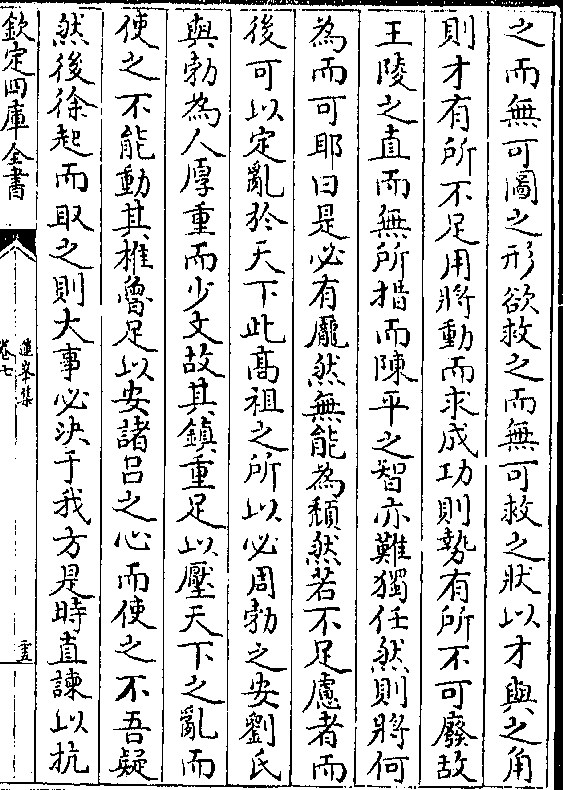 之而無可圖之形欲救之而無可救之狀以才與之角
則才有所不足用將動而求成功則勢有所不可廢故
王陵之直而無所措而陳平之智亦難獨任然則將何
為而可耶曰是必有龎然無能為頽然若不足慮者而
後可以定亂於天下此髙祖之所以必周勃之安劉氏
與勃為人厚重而少文故其鎮重足以壓天下之亂而
使之不能動其椎魯足以安諸吕之心而使之不吾疑
然後徐起而取之則大事必決于我方是時直諫以抗
欽定四庫全書
蓮峯集
卷七